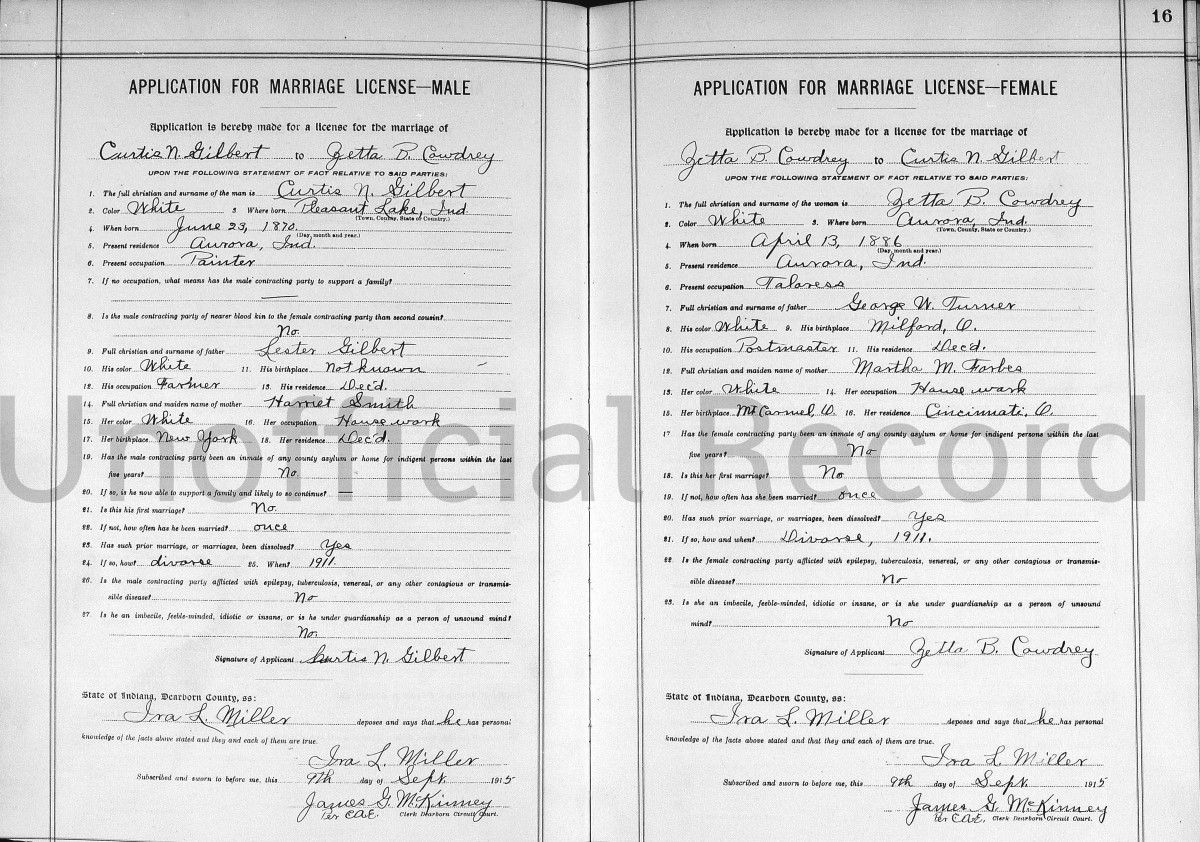 16
APPLICATION FOR MARRIAGE LICENSE—MALE
Application is hereby made for a license for the marriage of
Curtis N. Gilbert to Zetta B. Cowdrey
UPON THE FOLLOWING STATEMENT OF FACT RELATIVE TO SAID PARTIES:
1. The full christian and surname of the man is Curtis N. Gilbert
2. Color White 3 Where born Pleasant Lake, Ind.
(Town, County, State or Country.)
4. When born June 23, 1870.
(Day, month and year.)
5. Present residence Aurora, Ind.
6. Present occupation Painter
7. If no occupation, what means has the male contracting party to support a family?
8. Is the male contracting party of nearer blood kin to the female contracting party than second cousin?
No.
9. Full christian and surname of father Lester Gilbert
10. His color White 11. His birthplace Not known
12. His occupation Farmer 13. His residence Dec'd.
14. Full christian and maiden name of mother Harriet Smith
15. Her color White 16. Her occupation House work
17. Her birthplace New York 18. Her residence Dec'd.
19. Has the male contracting party been an inmate of any county asylum or home for indigent persons within the last
five years? No.
20. If so, is he now able to support a family and likely to so continue? —
21. Is this his first marriage? No.
22. If not, how often has he been married? once
23. Has such prior marriage, or marriages, been dissolved? Yes
24. If so, how? divorse 25. When? 1911.
26. Is the male contracting party afflicted with epilepsy, tuberculosis, venereal, or any other contagious or transmis-
sible disease? No
27. Is he an imbecile, feeble-minded, idiotic or insane, or is he under guardianship as a person of unsound mind?
No.
Signature of Applicant Curtis N. Gilbert
State of Indiana, Dearborn County, ss:
Ira L. Miller deposes and says that he has personal
knowledge of the facts above stated and they and each of them are true.
Ira L. Miller
Subscribed and sworn to before me, this 9th day of Sept. 1915
James G. McKinney
Per C.A.E. Clerk Dearborn Circuit Court.
APPLICATION FOR MARRIAGE LICENSE—FEMALE
Application is hereby made for a license for the marriage of
Zetta B. Cowdrey to Curtis N. Gilbert
UPON THE FOLLOWING STATEMENT OF FACT RELATIVE TO SAID PARTIES:
1. The full christian and surname of the woman is Zetta B. Cowdrey
2. Color White 3. Where born Aurora, Ind.
(Town, County, State or Country.)
4. When born April 13, 1886
(Day, month and year.)
5. Present residence Aurora, Ind.
6. Present occupation Taloress
7. Full christian and surname of father George W. Turner
8. His color White 9. His birthplace Milford, O.
10. His occupation Postmaster 11. His residence Dec'd.
12. Full christian and maiden name of mother Martha M. Forbes
13. Her color White 14. Her occupation House work
15. Her birthplace Mt Carmel, O. 16. Her residence Cincinnati, O.
17 Has the female contracting party been an inmate of any county asylum or home for indigent persons within the last
five years? No
18. Is this her first marriage? No
19. If not, how often has she been married? once
20. Has such prior marriage, or marriages, been dissolved? Yes
21. If so, how and when? Divorse, 1911.
22. Is the female contracting party afflicted with epilepsy, tuberculosis, venereal, or any other contagious or transmis-
sible disease? No
23. Is she an imbecile, feeble-minded, idiotic or insane, or is she under guardianship as a person of unsound
mind? No
Signature of Applicant Zetta B. Cowdrey
State of Indiana, Dearborn County, ss:
Ira L. Miller deposes and says that he has personal
knowledge of the facts above stated and that they and each of them are true.
Ira L. Miller
Subscribed and sworn to before me, this 9th day of Sept. 1915
James G. McKinney
Per C.A.E. Clerk Dearborn Circuit Court.
Unofficial Record